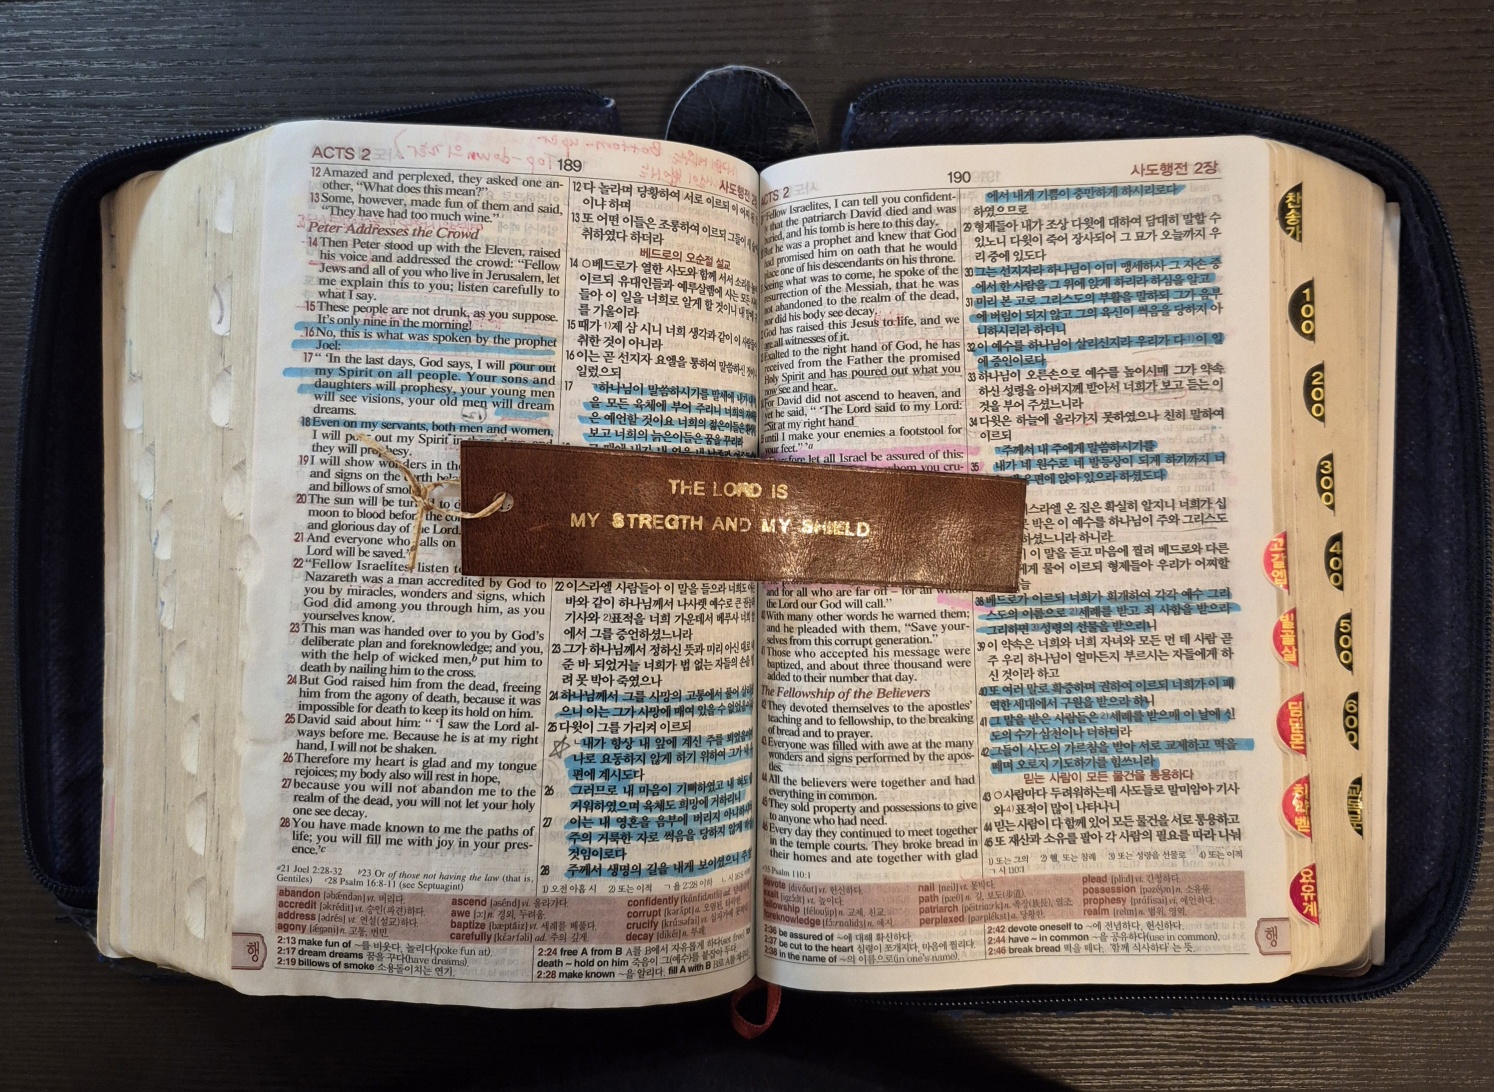 ACTS 2
189
12 Amazed and perplexed, they asked one an-
other, "What does this mean?"
13 Some, however, made fun of them and said,
"They have had too much wine."
Peter Addresses the Crowd
14 Then Peter stood up with the Eleven, raised
his voice and addressed the crowd: "Fellow
Jews and all of you who live in Jerusalem, let
me explain this to you; listen carefully to
what I say.
15 These people are not drunk, as you suppose.
It's only nine in the morning!
16 No, this is what was spoken by the prophet
Joel:
17 " 'In the last days, God says, I will pour out
my Spirit on all people. Your sons and
daughters will prophesy, your young men
will see visions, your old men will dream
dreams.
18 Even on my servants, both men and women,
I will pour out my Spirit in
they will prophesy.
19 I will show wonders in the
and signs on the earth
and billows of smoke
20 The sun will be turned to
moon to blood before the
and glorious day of the Lord.
21 And everyone who calls on
Lord will be saved.'
22 "Fellow Israelites, listen to
Nazareth was a man accredited by God to
you by miracles, wonders and signs, which
God did among you through him, as you
yourselves know.
23 This man was handed over to you by God's
deliberate plan and foreknowledge; and you,
with the help of wicked men,b put him to
death by nailing him to the cross.
24 But God raised him from the dead, freeing
him from the agony of death, because it was
impossible for death to keep its hold on him.
25 David said about him: " 'I saw the Lord al-
ways before me. Because he is at my right
hand, I will not be shaken.
26 Therefore my heart is glad and my tongue
rejoices; my body also will rest in hope,
27 because you will not abandon me to the
realm of the dead, you will not let your holy
one see decay.
28 You have made known to me the paths of
life; you will fill me with joy in your pres-
ence.'c
12 다 놀라며 당황하여 서로 이르되 이 어찌
이냐 하며
13 또 어떤 이들은 조롱하여 이르되 그들이
취하였다 하더라
베드로의 오순절 설교
14 ○베드로가 열한 사도와 함께 서서 소리를
이르되 유대인들과 예루살렘에 사는 모든
들아 이 일을 너희로 알게 할 것이니 내
를 기울이라
15 때가 1)제 삼 시니 너희 생각과 같이 이 사람들이
취한 것이 아니라
16 이는 곧 선지자 요엘을 통하여 말씀하신
일렀으되
17 하나님이 말씀하시기를 말세에 내가
을 모든 육체에 부어 주리니 너희의 자녀들
은 예언할 것이요 너희의 젊은이들은
보고 너희의 늙은이들은 꿈을 꾸리라
22 이스라엘 사람들아 이 말을 들으라 너희도
바와 같이 하나님께서 나사렛 예수로 큰
기사와 2)표적을 너희 가운데서 베푸사 너희
에서 그를 증언하셨느니라
23 그가 하나님께서 정하신 뜻과 미리 아신 대로
준 바 되었거늘 너희가 법 없는 자들의 손을
려 못 박아 죽였으나
24 하나님께서 그를 사망의 고통에서 풀어
으니 이는 그가 사망에 매여 있을 수 없었음이라
25 다윗이 그를 가리켜 이르되
내가 항상 내 앞에 계신 주를 뵈었음이여
나로 요동하지 않게 하기 위하여 그가
편에 계시도다
26 그러므로 내 마음이 기뻐하였고 내 혀도
거워하였으며 육체도 희망에 거하리니
27 이는 내 영혼을 음부에 버리지 아니하시며
주의 거룩한 자로 썩음을 당하지 않게 하실
것임이로다
28 주께서 생명의 길을 내게 보이셨으니 주
a21 Joel 2:28-32 b23 Or of those not having the law (that is,
Gentiles) c28 Psalm 16:8-11 (see Septuagint)
1) 오전 아홉 시 2) 또는 이적
abandon [əbǽndən] vt. 버리다.
accredit [əkrédit] vt. 승인(파견)하다.
address [ədrés] vt. 연설(설교)하다.
agony [ǽgəni] n. 고통, 번민.
ascend [əsénd] vi. 올라가다.
awe [ɔː] n. 경외, 두려움.
baptize [bæptáiz] vt. 세례를 베풀다.
carefully [kɛ́ərfəli] ad. 주의 깊게.
confidently
corrupt
crucify
decay
2:13 make fun of ~를 비웃다, 놀리다(poke fun at).
2:17 dream dreams 꿈을 꾸다(have dreams).
2:19 billows of smoke 소용돌이치는 연기.
2:24 free A from B A를 B에서 자유롭게 하다
death ~ hold on him 죽음이 그(예수)를 붙잡아 두다.
2:28 make known ~을 알리다. fill A with B
행
THE LORD IS
MY STREGTH AND MY SHIELD
ACTS 2
190
사도행전 2장
"Fellow Israelites, I can tell you confident-
that the patriarch David died and was
buried, and his tomb is here to this day.
But he was a prophet and knew that God
had promised him on oath that he would
place one of his descendants on his throne.
Seeing what was to come, he spoke of the
resurrection of the Messiah, that he was
not abandoned to the realm of the dead,
nor did his body see decay.
God has raised this Jesus to life, and we
are all witnesses of it.
Exalted to the right hand of God, he has
received from the Father the promised
Holy Spirit and has poured out what you
now see and hear.
For David did not ascend to heaven, and
yet he said, " 'The Lord said to my Lord:
"Sit at my right hand
until I make your enemies a footstool for
your feet." 'a
let all Israel be assured of this:
whom you cru-
and for all who are far off – for all whom
the Lord our God will call."
With many other words he warned them;
and he pleaded with them, "Save your-
selves from this corrupt generation."
Those who accepted his message were
baptized, and about three thousand were
added to their number that day.
The Fellowship of the Believers
They devoted themselves to the apostles'
teaching and to fellowship, to the breaking
of bread and to prayer.
Everyone was filled with awe at the many
wonders and signs performed by the apos-
tles.
All the believers were together and had
everything in common.
They sold property and possessions to give
to anyone who had need.
Every day they continued to meet together
in the temple courts. They broke bread in
their homes and ate together with glad
에서 내게 기쁨이 충만하게 하시리로다
하였으므로
29 형제들아 내가 조상 다윗에 대하여 담대히 말할 수
있노니 다윗이 죽어 장사되어 그 묘가 오늘까지 우
리 중에 있도다
30 그는 선지자라 하나님이 이미 맹세하사 그 자손 중
에서 한 사람을 그 위에 앉게 하리라 하심을 알고
31 미리 본 고로 그리스도의 부활을 말하되 그가 음부
에 버림이 되지 않고 그의 육신이 썩음을 당하지 아
니하시리라 하더니
32 이 예수를 하나님이 살리신지라 우리가 다 1)이 일
에 증인이로다
33 하나님이 오른손으로 예수를 높이시매 그가 약속
하신 성령을 아버지께 받아서 너희가 보고 듣는 이
것을 부어 주셨느니라
34 다윗은 하늘에 올라가지 못하였으나 친히 말하여
이르되
주께서 내 주에게 말씀하시기를
35 내가 네 원수로 네 발등상이 되게 하기까지 너
우편에 앉아 있으라 하셨도다
스라엘 온 집은 확실히 알지니 너희가 십
박은 이 예수를 하나님이 주와 그리스도
하셨느니라 하니라
이 말을 듣고 마음에 찔려 베드로와 다른
에게 물어 이르되 형제들아 우리가 어찌할
38 베드로가 이르되 너희가 회개하여 각각 예수 그리
스도의 이름으로 2)세례를 받고 죄 사함을 받으라
그리하면 3)성령의 선물을 받으리니
39 이 약속은 너희와 너희 자녀와 모든 먼 데 사람 곧
주 우리 하나님이 얼마든지 부르시는 자들에게 하
신 것이라 하고
40 또 여러 말로 확증하며 권하여 이르되 너희가 이 패
역한 세대에서 구원을 받으라 하니
41 그 말을 받은 사람들은 2)세례를 받으매 이 날에 신
도의 수가 삼천이나 더하더라
42 그들이 사도의 가르침을 받아 서로 교제하고 떡을
떼며 오로지 기도하기를 힘쓰니라
믿는 사람이 모든 물건을 통용하다
43 ○사람마다 두려워하는데 사도들로 말미암아 기사
와 4)표적이 많이 나타나니
44 믿는 사람이 다 함께 있어 모든 물건을 서로 통용하고
45 또 재산과 소유를 팔아 각 사람의 필요를 따라 나눠
Psalm 110:1
1) 또는 그의 2) 헬, 또는 침례 3) 또는 성령을 선물로 4) 또는 이적
devote [divóut] vt. 헌신하다.
exalt vt. 높이다.
fellowship n. 교제, 친교.
foreknowledge
nail [neil] vt. 못박다.
path [pæθ] n. 길, 보도(步道).
patriarch [péitriɑ̀ːrk] n. 족장(族長), 열조.
perplexed [pərplékst] a. 당황한.
plead [pliːd] vi. 간청하다.
possession [pəzéʃən] n. 소유물.
prophesy [práfisai] vt. 예언하다.
realm [relm] n. 범위, 영역.
2:36 be assured of ~에 대해 확신하다.
2:37 be cut to the heart 심령이 쪼개지다, 마음에 찔리다.
2:38 in the name of ~의 이름으로(in one's name).
2:42 devote oneself to ~에 전념하다, 헌신하다.
2:44 have ~ in common ~을 공유하다(use in common).
2:46 break bread 빵을 떼다, '함께 식사하다'는 뜻.
행
찬송가
100
200
300
400
500
600
교독문
고갈엡
빌골살
딤딛몬
히약벧
요유계